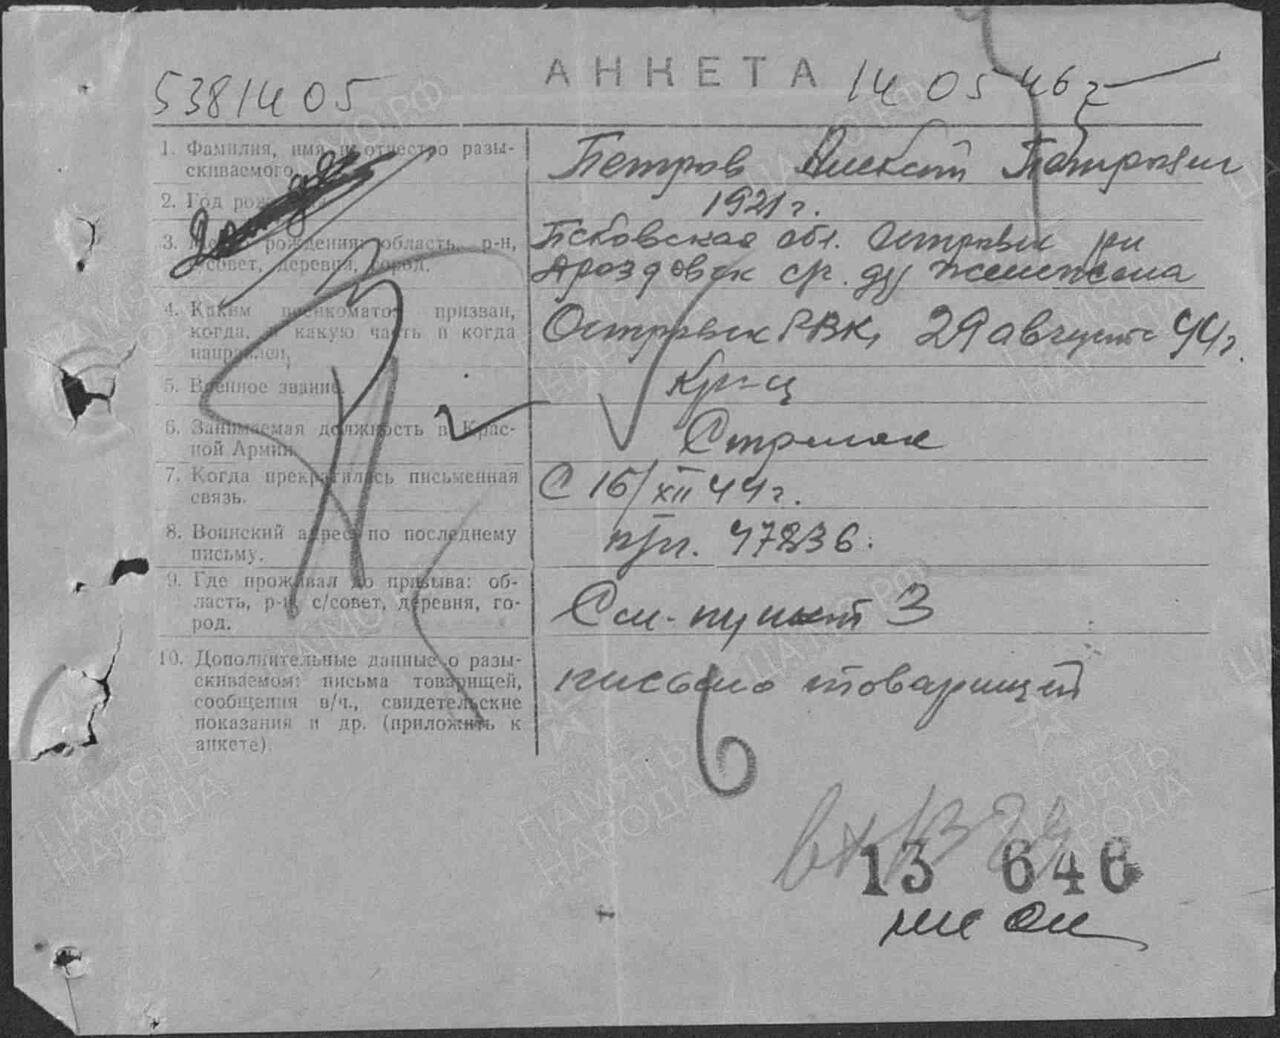 АНКЕТА
5381405
14 05 46 г
1. Фамилия, имя и отчество разы-
скиваемого
Петров Петрович
2. Год рождения
1921 г.
3. Место рождения: область, р-н,
с/совет, деревня, город.
Псковская обл. Островск р-н
Дроздовск с/с. д.
4. Каким военкоматом призван,
когда, в какую часть и когда
направлен,
Островск РВК, 29 августа 44 г.
5. Военное звание
Кр-ц
6. Занимаемая должность в Крас-
ной Армии
Стрелок
7. Когда прекратилась письменная
связь.
С 15/XII 44 г.
8. Воинский адрес по последнему
письму.
п/п. 47836.
9. Где проживал до призыва: об-
ласть, р-н, с/совет, деревня, го-
род.
См. пункт 3
10. Дополнительные данные о разы-
скиваемом: письма товарищей,
сообщения в/ч., свидетельские
показания и др. (приложить к
анкете)
письмо товарищей
13 646
ПАМЯТЬ
НАРОДА
ЦАМО.РФ